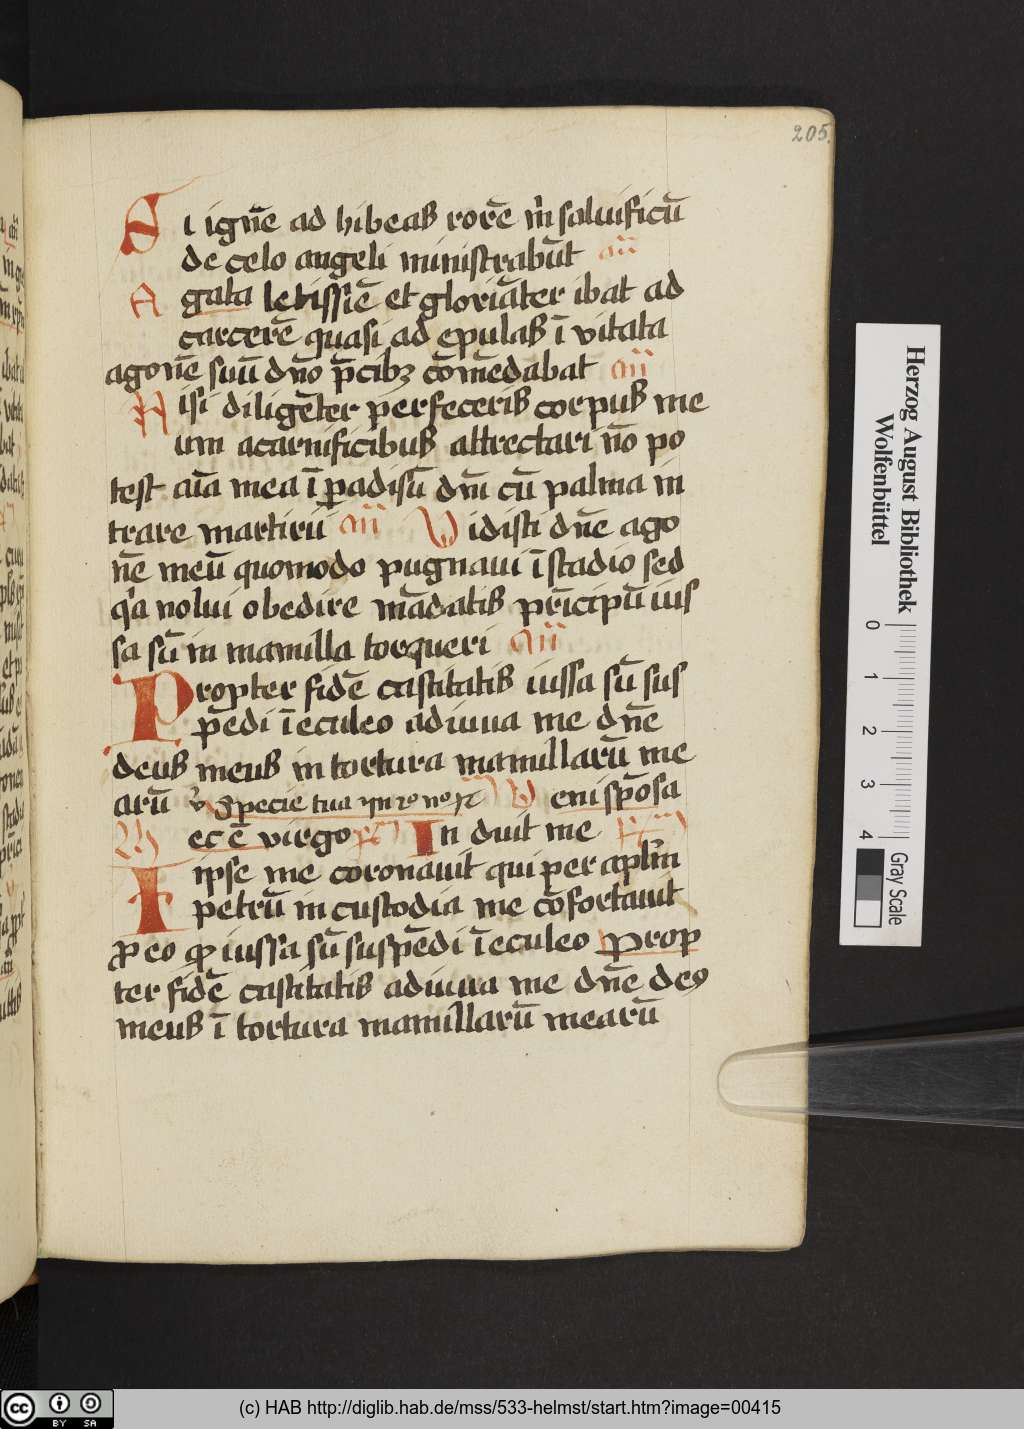 205.
Si ignē ad hibeas rorē m̄ saluificū
de celo angeli ministrabūt an̄
Agata letissīe et gloriāter ibat ad
carcerē quasi ad epulas ī vitata
agonē suū dn̄o p̄cibꝫ cōmēdabat an̄
Nisi diligēter perfeceris corpus me
um acarnificibus attrectari nō po
test aīa mea ī ꝑadisū dn̄i cū palma in
trare martirii an̄ Vidisti dn̄e ago
nē meū quomodo pugnaui ī stadio sed
q'a nolui obedire mādatis prīcipū ius
sa sū in mamilla torqueri an̄
Propter fidē castitatis iussa sū sus
pēdi ī eculeo adiuua me dn̄e
deus meus in tortura mamillarū me
arū v̄ Specie tua Veni spōsa
ec ē virgo In diuit me
Ipse me coronauit qui per apl'm
petrū in custodia me cōfortauit
Pro eo ꝙ iussa sū suspēdi ī eculeo Prop
ter fidē castitatis adiuua me dn̄e deꝰ
meus ī tortura mamillarū mearū
Herzog August Bibliothek
Wolfenbüttel
0 1 2 3 4
Gray Scale
cc BY SA
(c) HAB http://diglib.hab.de/mss/533-helmst/start.htm?image=00415